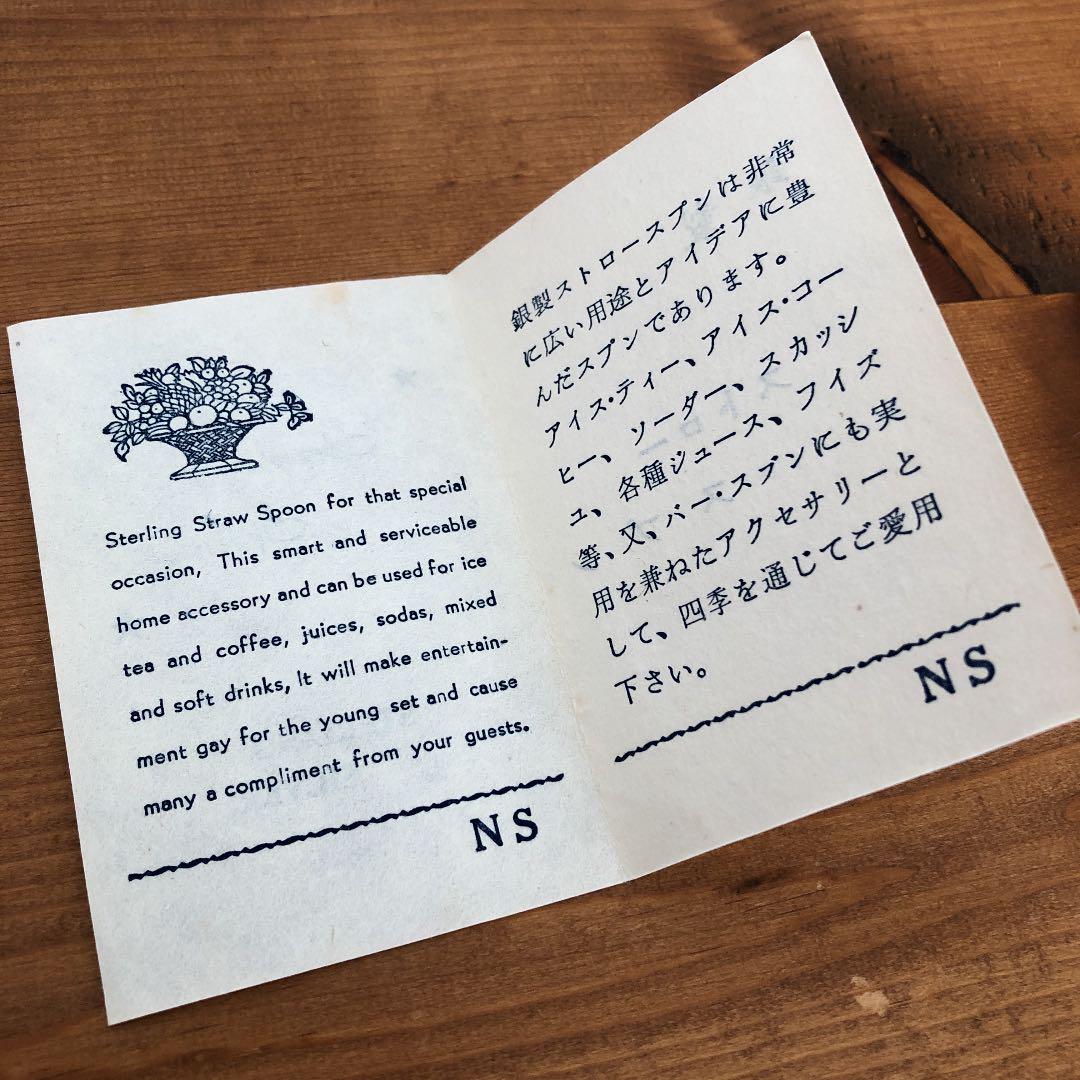 Sterling Straw Spoon for that special
occasion, This smart and serviceable
home accessory and can be used for ice
tea and coffee, juices, sodas, mixed
and soft drinks, It will make entertain-
ment gay for the young set and cause
many a compliment from your guests.
NS
銀製ストロースプンは非常
に広い用途とアイデアに豊
んだスプンであります。
アイス・ティー、アイス・コー
ヒー、ソーダー、スカッシ
ュ、各種ジュース、フイズ
等、又、バー・スプンにも実
用を兼ねたアクセサリーと
して、四季を通じてご愛用
下さい。
NS